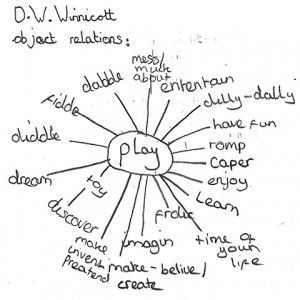 D.W. Winnicott
object relations:
mess/
muck
about
entertain
dully-dally
have fun
romp
caper
enjoy
learn
time of
your
life
frolic
imagin
make-belive/
create
make
invent
preatend
discover
toy
dream
diddle
fiddle
dabble
play